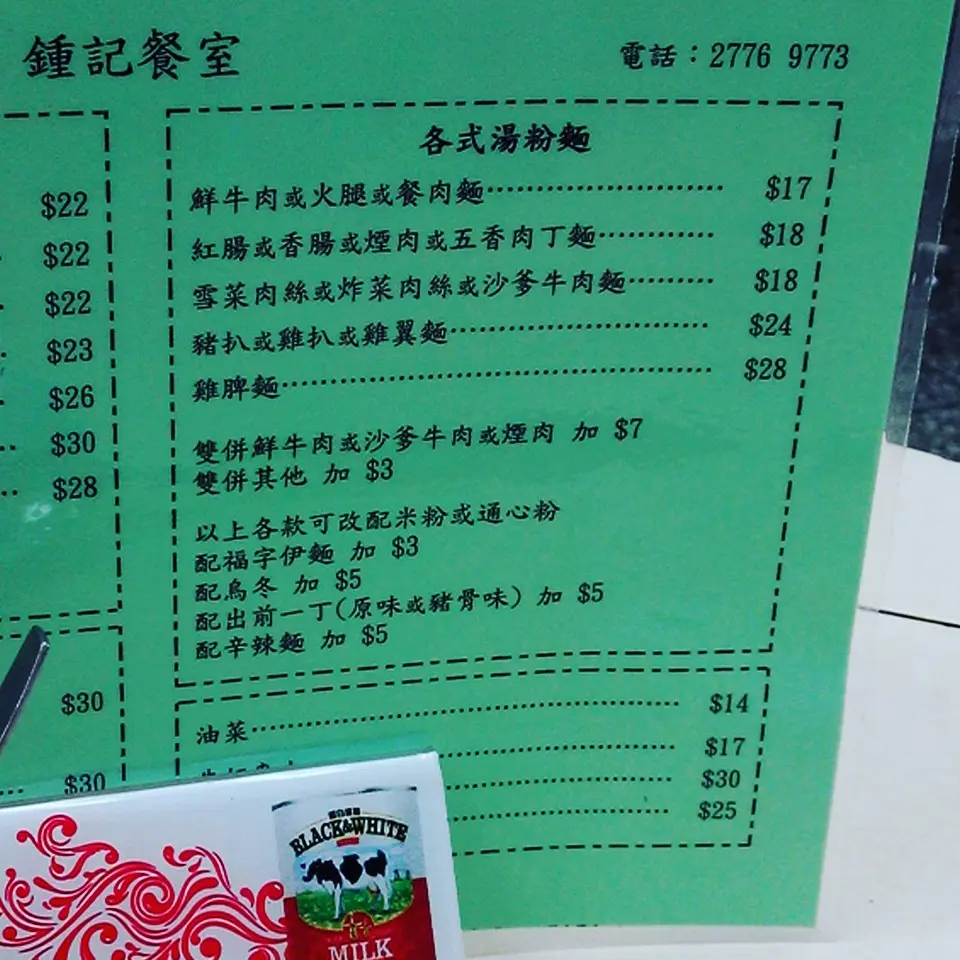 鍾記餐室
電話：2776 9773
$22
$22
$22
$23
$26
$30
$28
$30
$30
各式湯粉麵
鮮牛肉或火腿或餐肉麵 $17
紅腸或香腸或煙肉或五香肉丁麵 $18
雪菜肉絲或炸菜肉絲或沙爹牛肉麵 $18
豬扒或雞扒或雞翼麵 $24
雞脾麵 $28
雙併鮮牛肉或沙爹牛肉或煙肉 加 $7
雙併其他 加 $3
以上各款可改配米粉或通心粉
配福字伊麵 加 $3
配烏冬 加 $5
配出前一丁(原味或豬骨味) 加 $5
配辛辣麵 加 $5
油菜 $14
$17
$30
$25
BLACK&WHITE
MILK